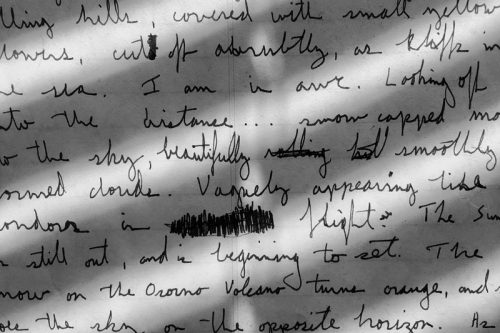 lling hills, covered with small yellow
lowers, cut off abrubtly, as kliffs in
e sea. I am in awe. Looking off
nto the distance.... snow capped mo
w the sky, beautifully rolling ball smoothly
ormed clouds. Vaguely appearing like
ondors in flight. The Sun
s still out, and is beginning to set. The
now on the Osorno Volcano turns orange, and s
oes the sky on the opposite horizon. As